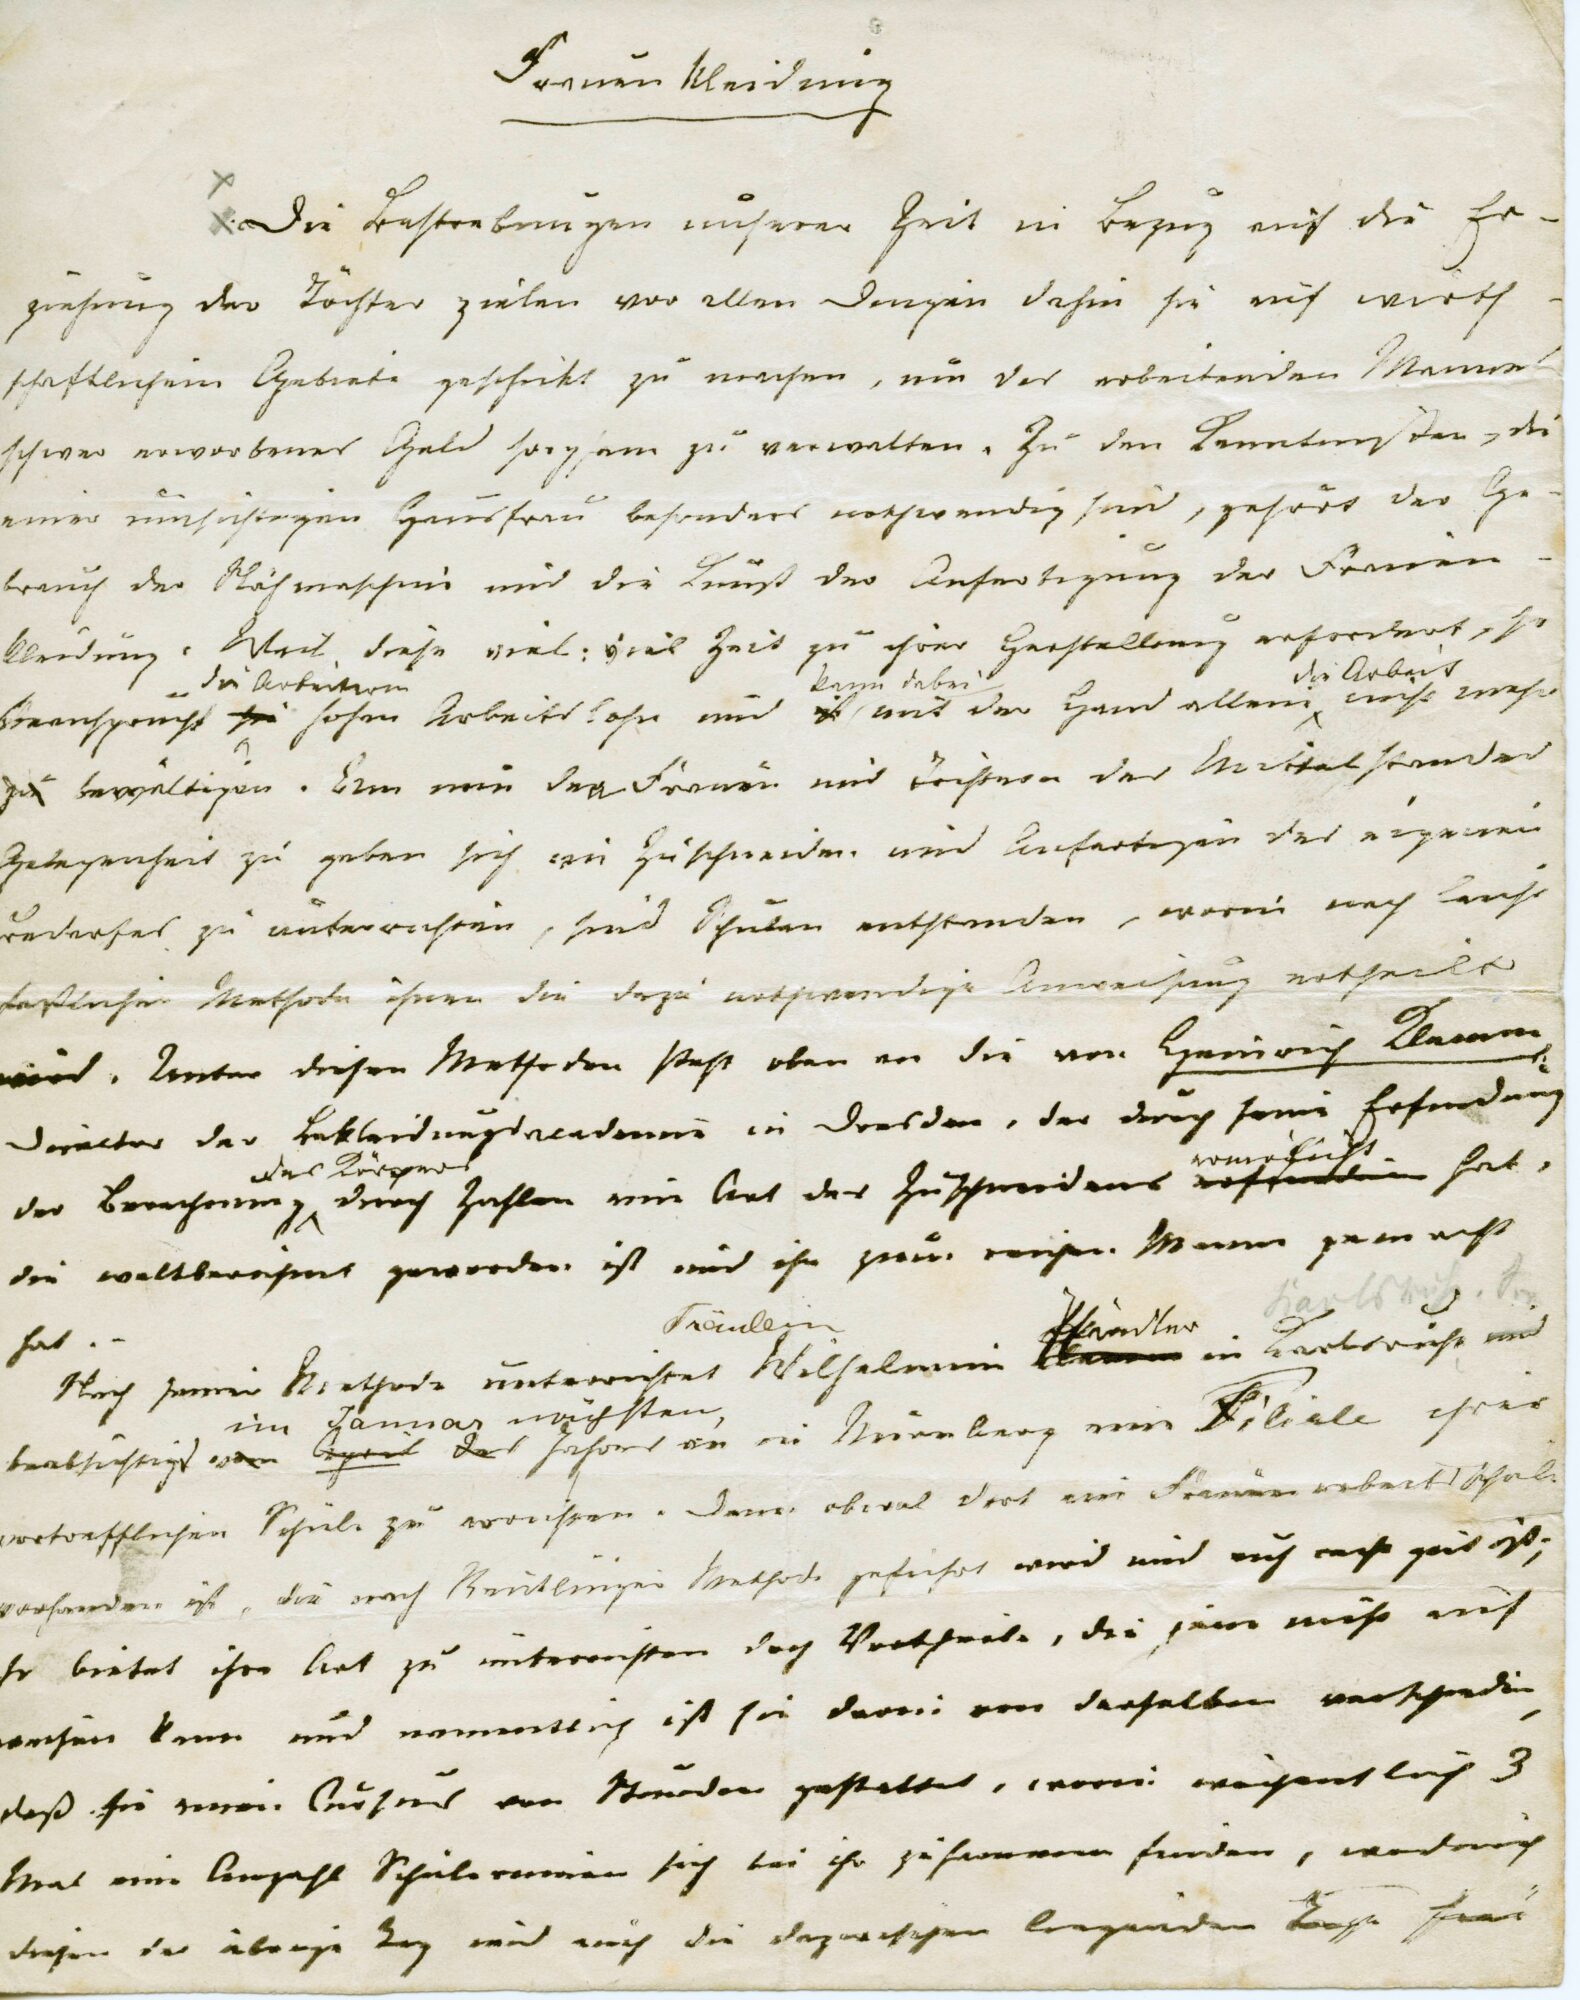 Frauenkleidung
Die Bestrebungen unserer Zeit in Bezug auf die Er-
ziehung der Töchter zielen vor allen Dingen dahin sie auf wirth-
schaftlichem Gebiete geschickt zu machen, um des arbeitenden Mannes
schwer erworbenes Geld sorgsam zu verwalten. Zu den Kenntnißen, die
einer umsichtigen Hausfrau besonders nothwendig sind, gehört der Ge-
brauch der Nähmaschine und die Kunst der Anfertigung der Frauen-
kleidung. Weil diese viel: viel Zeit zu ihrer Herstellung erfordert, so
die Arbeiterin kann dabei die Arbeit
beansprucht sie hohen Arbeitslohn und ist mit der Hand allein nicht mehr
zu bewältigen. Um nun den Frauen und Töchtern des Mittelstandes
Gelegenheit zu geben sich im Zuschneiden und Anfertigen des eigenen
Bedarfes zu unterrichten, sind Schulen entstanden, worin nach leicht
faßlicher Methode ihnen die dazu nothwendige Anweisung ertheilt
wird. Unter diesen Methoden steht oben an die von Heinrich Klemm
Director der Bekleidungsacademie in Dresden, der durch seine Erfindung
des Körpers ermöglicht
der Berechnung durch Zahlen eine Art des Zuschneidens erfunden hat,
die weltberühmt geworden ist und ihn zum reichen Mann gemacht
hat. -
Karlsruhe.
Fräulein Pfändler
Nach seiner Methode unterrichtet Wilhelmine Klemm in Karlsruhe und
im Januar nächsten
beabsichtigt vom April des Jahres an in Nürnberg eine Filiale ihrer
vortrefflichen Schule zu errichten. Denn obwol dort eine Frauenarbeitsschule
vorhanden ist, die nach Reutlinger Methode geführt wird und auch recht gut ist;
so bietet ihre Art zu unterrichten doch Vortheile, die jene nicht auf
weisen kann und namentlich ist sie darin von derselben verschieden,
daß sie einen Cursus von Stunden gestattet, worin wöchentlich 3
Mal eine Anzahl Schülerinnen sich bei ihr zusammen finden, wodurch
diesen der übrige Tag und auch die dazwischen liegenden Tage frei